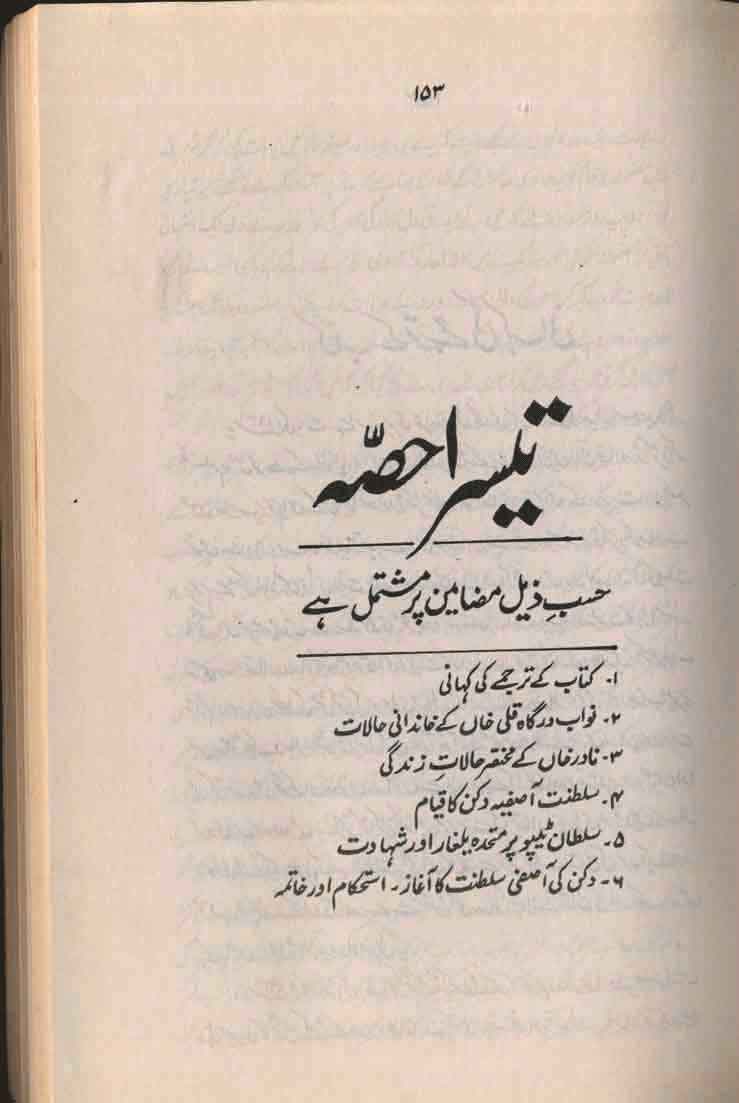 ۱۵۳
تیسرا حصّہ
حسبِ ذیل مضامین پر مشتمل ہے
۱۔ کتاب کے ترجمے کی کہانی
۲۔ نواب درگاہ قلی خاں کے خاندانی حالات
۳۔ نادر خاں کے مختصر حالاتِ زندگی
۴۔ سلطنت آصفیہ دکن کا قیام
۵۔ سلطان ٹیپو پر متحدہ یلغار اور شہادت
۶۔ دکن کی آصفی سلطنت کا آغاز۔ استحکام اور خاتمہ